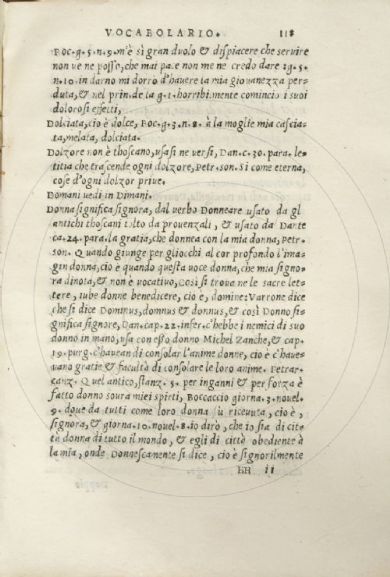 VOCABOLARIO. 118
Boc. g. 5. n. 9. m'è sì gran duolo & dispiacere che servire
non ve ne posso, che mai pace non me ne credo dare. g. 5.
n. 10. in darno mi dorrò d'havere la mia giovanezza per-
duta, & nel prin. de la g. 1. horribilmente cominciò i suoi
dolorosi effetti,
Dolciata, cio è dolce, Boc. g. 3. n. 8. à la moglie mia casciat-
ta, melata, dolciata.
Dolzore non è thoscano, usasi ne versi, Dan. c. 30. para. le-
titia che trascende ogni dolzore, Petr. son. Si come eterna,
cose d'ogni dolzor prive.
Domani vedi in Dimani.
Donna significa signora, dal verbo Donneare usato da gl
antichi thoscani tolto da provenzali, & usato da Dante
ca. 24. para. la gratia, che donnea con la mia donna, Petr.
son. Quando giunge per gliocchi al cor profondo l'ima-
gin donna, cio è quando questa voce donna, che mia signo-
ra dinota, & non è vocativo, Così si trova ne le sacre let-
tere, iube donne benedicere, cio è, domine: Varrone dice
che si dice Dominus, domnus & donnus, & così Donno si-
gnifica signore, Dan. cap. 22. infer. c'hebbe i nemici di suo
donno in mano, usa con esso donno Michel Zanche, & cap.
19. purg. c'havean di consolar l'anime donne, cio è c'have-
vano gratie & facultà di consolare le loro anime. Petrar.
canz. Quel antico, stanz. 5. per inganni & per forza è
fatto donno sovra miei spirti, Boccaccio giorna. 3. novel.
9. dove da tutti come loro donna fù ricevuta, cio è,
signora, & giorna. 10. novel. 8. io dirò, che io sia di cit-
tà donna di tutto il mondo, & egli di città obediente à
la mia, onde Donnescamente si dice, cio è signorilmente
HH ii